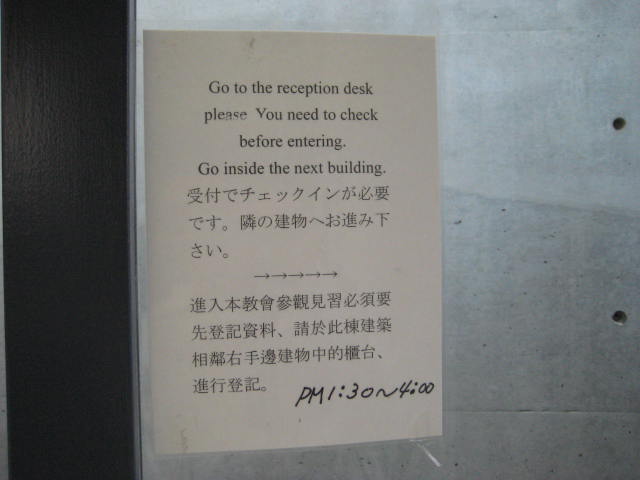 Go to the reception desk
please. You need to check
before entering.
Go inside the next building.
受付でチェックインが必要
です。隣の建物へお進み下
さい。
→→→→→
進入本教會參觀見習必須要
先登記資料、請於此棟建築
相鄰右手邊建物中的櫃台、
進行登記。
PM1:30~4:00